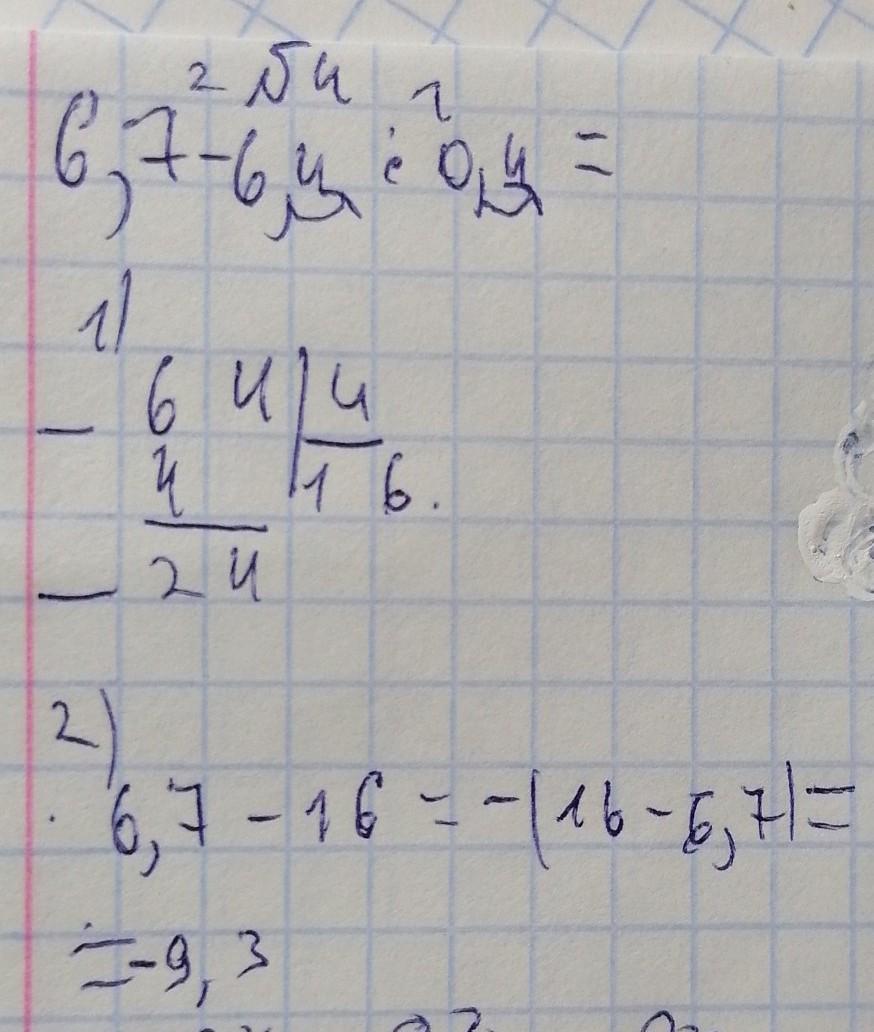 2 54 1
6,7-6,4:0,4=
1)
- 64|4
4 16.
- 24
2)
6,7-16=-(16-6,7)=
=-9,3